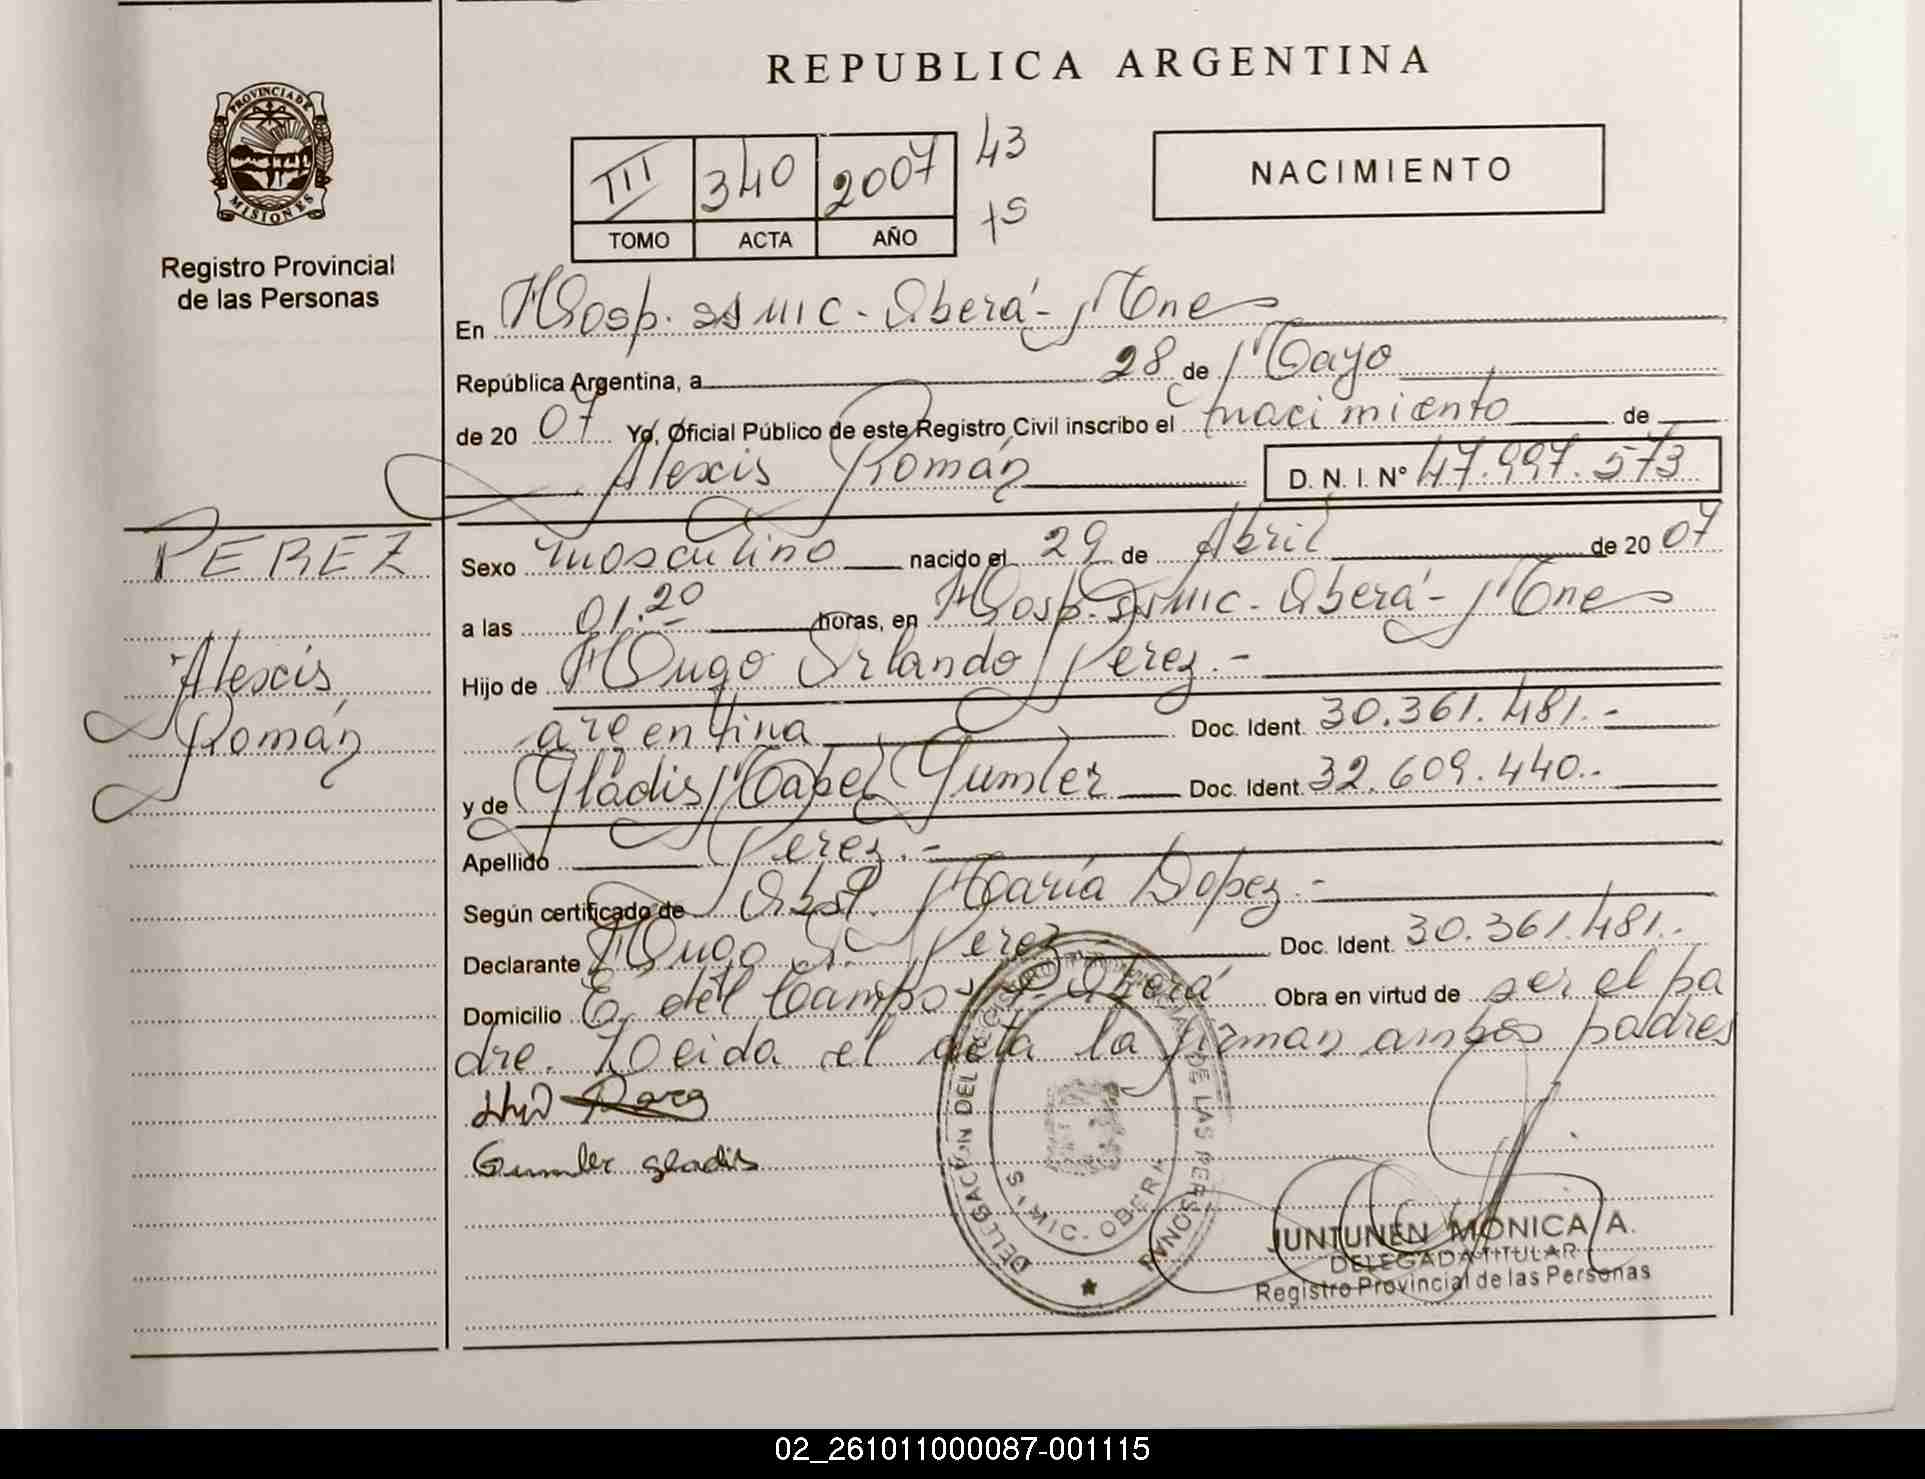 REPUBLICA ARGENTINA
PROVINCIA DE
MISIONES
Registro Provincial
de las Personas
III 340 2007 43
TOMO ACTA AÑO 15
NACIMIENTO
En Hosp. SSMIC - Oberá - Mnes
República Argentina, a 28 de Mayo
de 2007 Yo, Oficial Público de este Registro Civil inscribo el nacimiento de
Alexis Román D. N. I. Nº 47.997.573
PEREZ
Alexis
Román
Sexo masculino nacido el 29 de Abril de 2007
a las 01.20 horas, en Hosp. SSMIC - Oberá - Mnes
Hijo de Hugo Orlando Perez.-
argentina Doc. Ident. 30.361.481.-
y de Gladis Mabel Gumler Doc. Ident. 32.609.440.-
Apellido Perez.-
Según certificado de Obst. María Lopez.-
Declarante Hugo O. Perez.- Doc. Ident. 30.361.481.-
Domicilio E. del Campo - Oberá Obra en virtud de ser el pa
dre. Leida el acta la firman ambos padres
Gumler gladis
DELEGACION DEL REGISTRO PROVINCIAL DE LAS PERSONAS
S.M.I.C. - OBERA
JUNTUNEN MONICA A.
DELEGADA TITULAR
Registro Provincial de las Personas
02_261011000087-001115